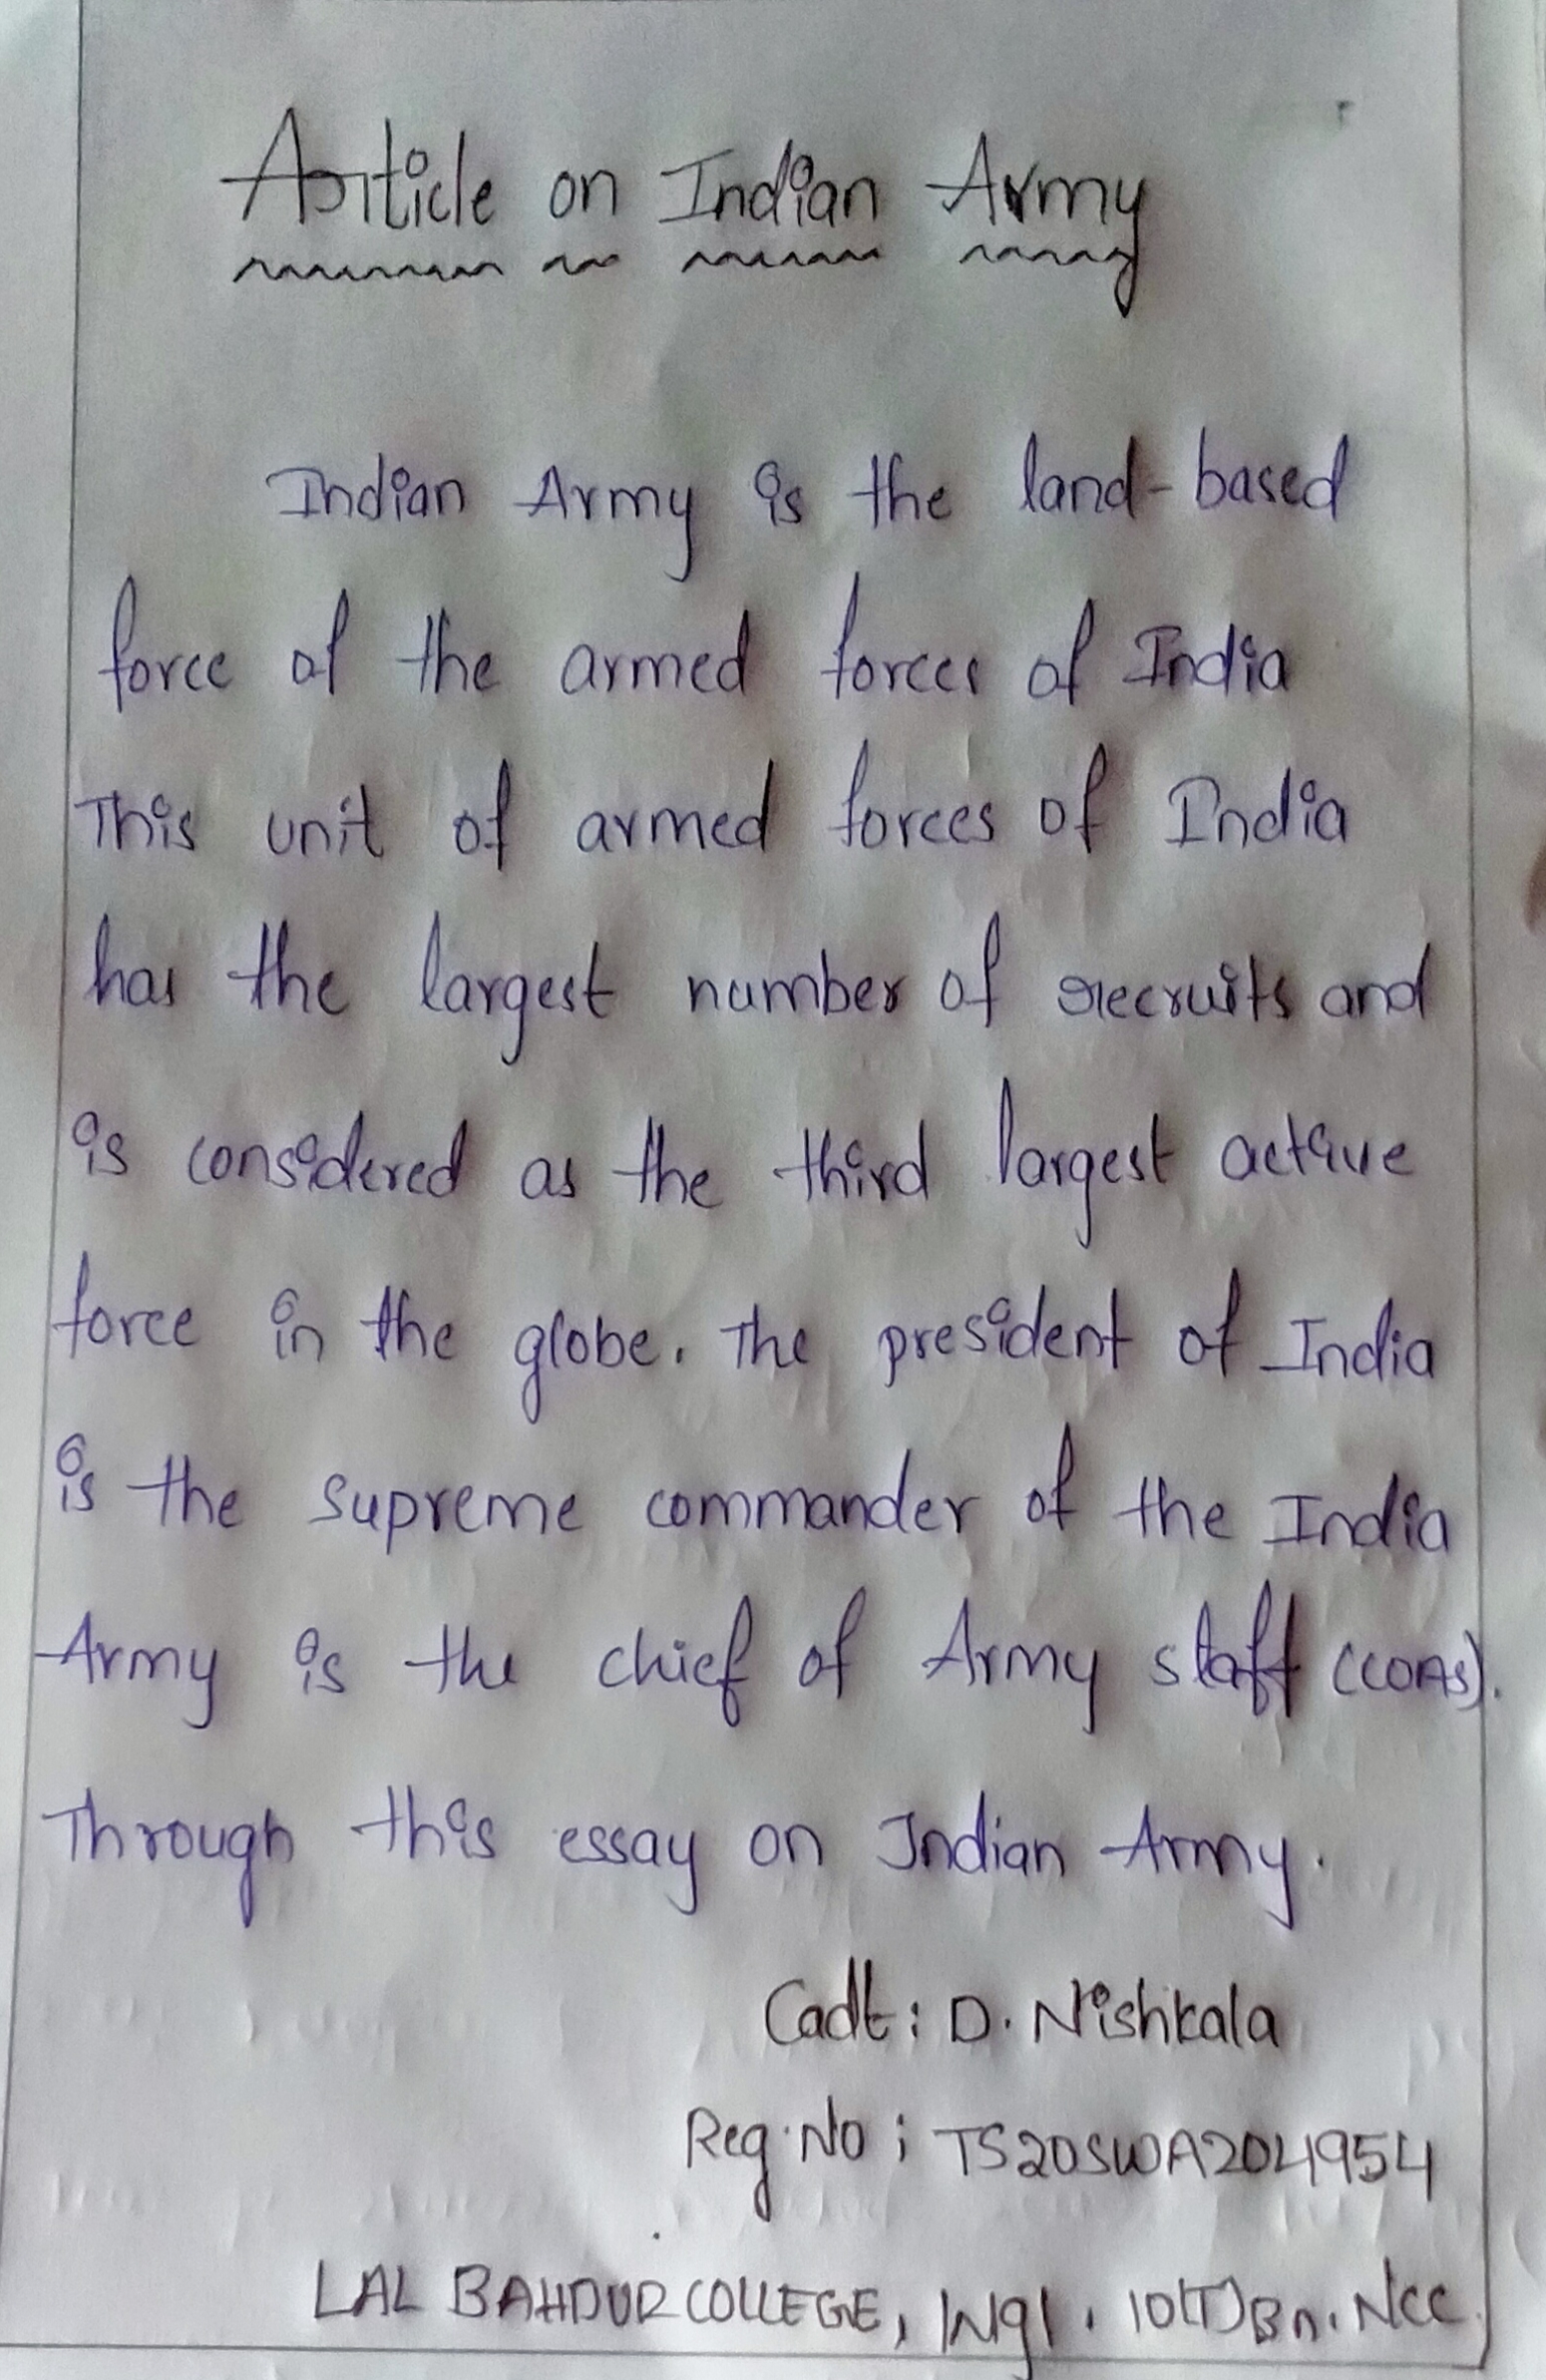 Article on Indian Army
Indian Army is the land-based
force of the armed forces of India
This unit of armed forces of India
has the largest number of recruits and
is considered as the third largest active
force in the globe. The president of India
is the supreme commander of the India
Army is the chief of Army staff (COAS).
Through this essay on Indian Army.
Cadt: D. Nishkala
Reg.No: TS20SWA204954
LAL BAHDUR COLLEGE, Wgl. 10(T)Bn. NCC